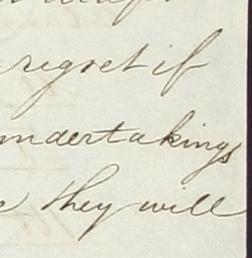 regret if
undertakings
they will